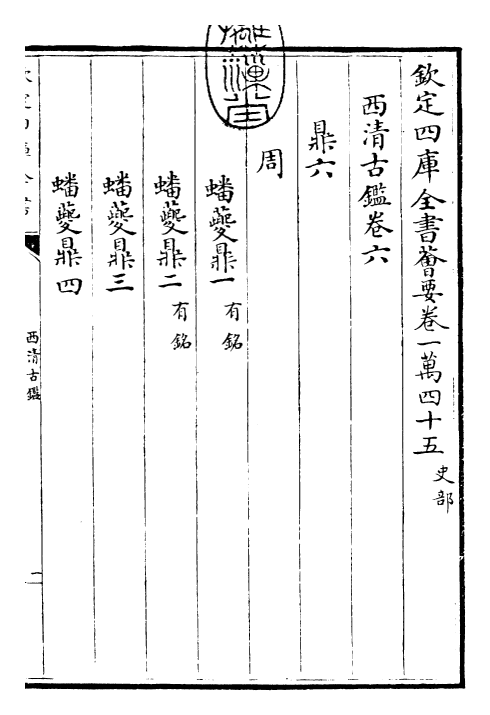 欽定四庫全書薈要卷一萬四十五 史部
西清古鑑卷六
鼎六
周
蟠夔鼎一 有銘
蟠夔鼎二 有銘
蟠夔鼎三
蟠夔鼎四
西清古鑑